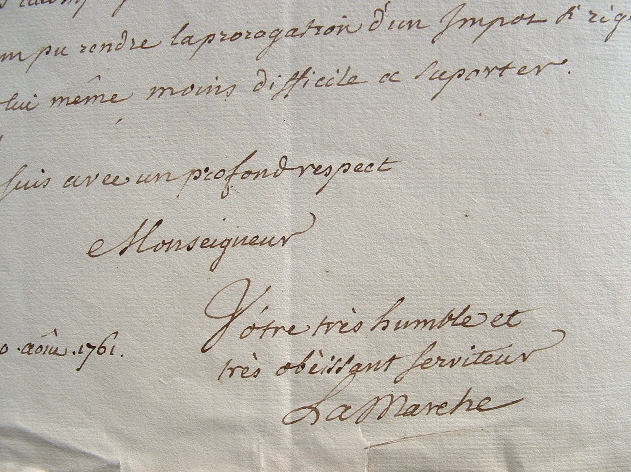 pu rendre la prorogation d'un Impot si rig
lui même moins difficile a suporter.
suis avec un profond respect
Monseigneur
Vôtre très humble et
0 août .1761.
très obèissant serviteur
La Marche